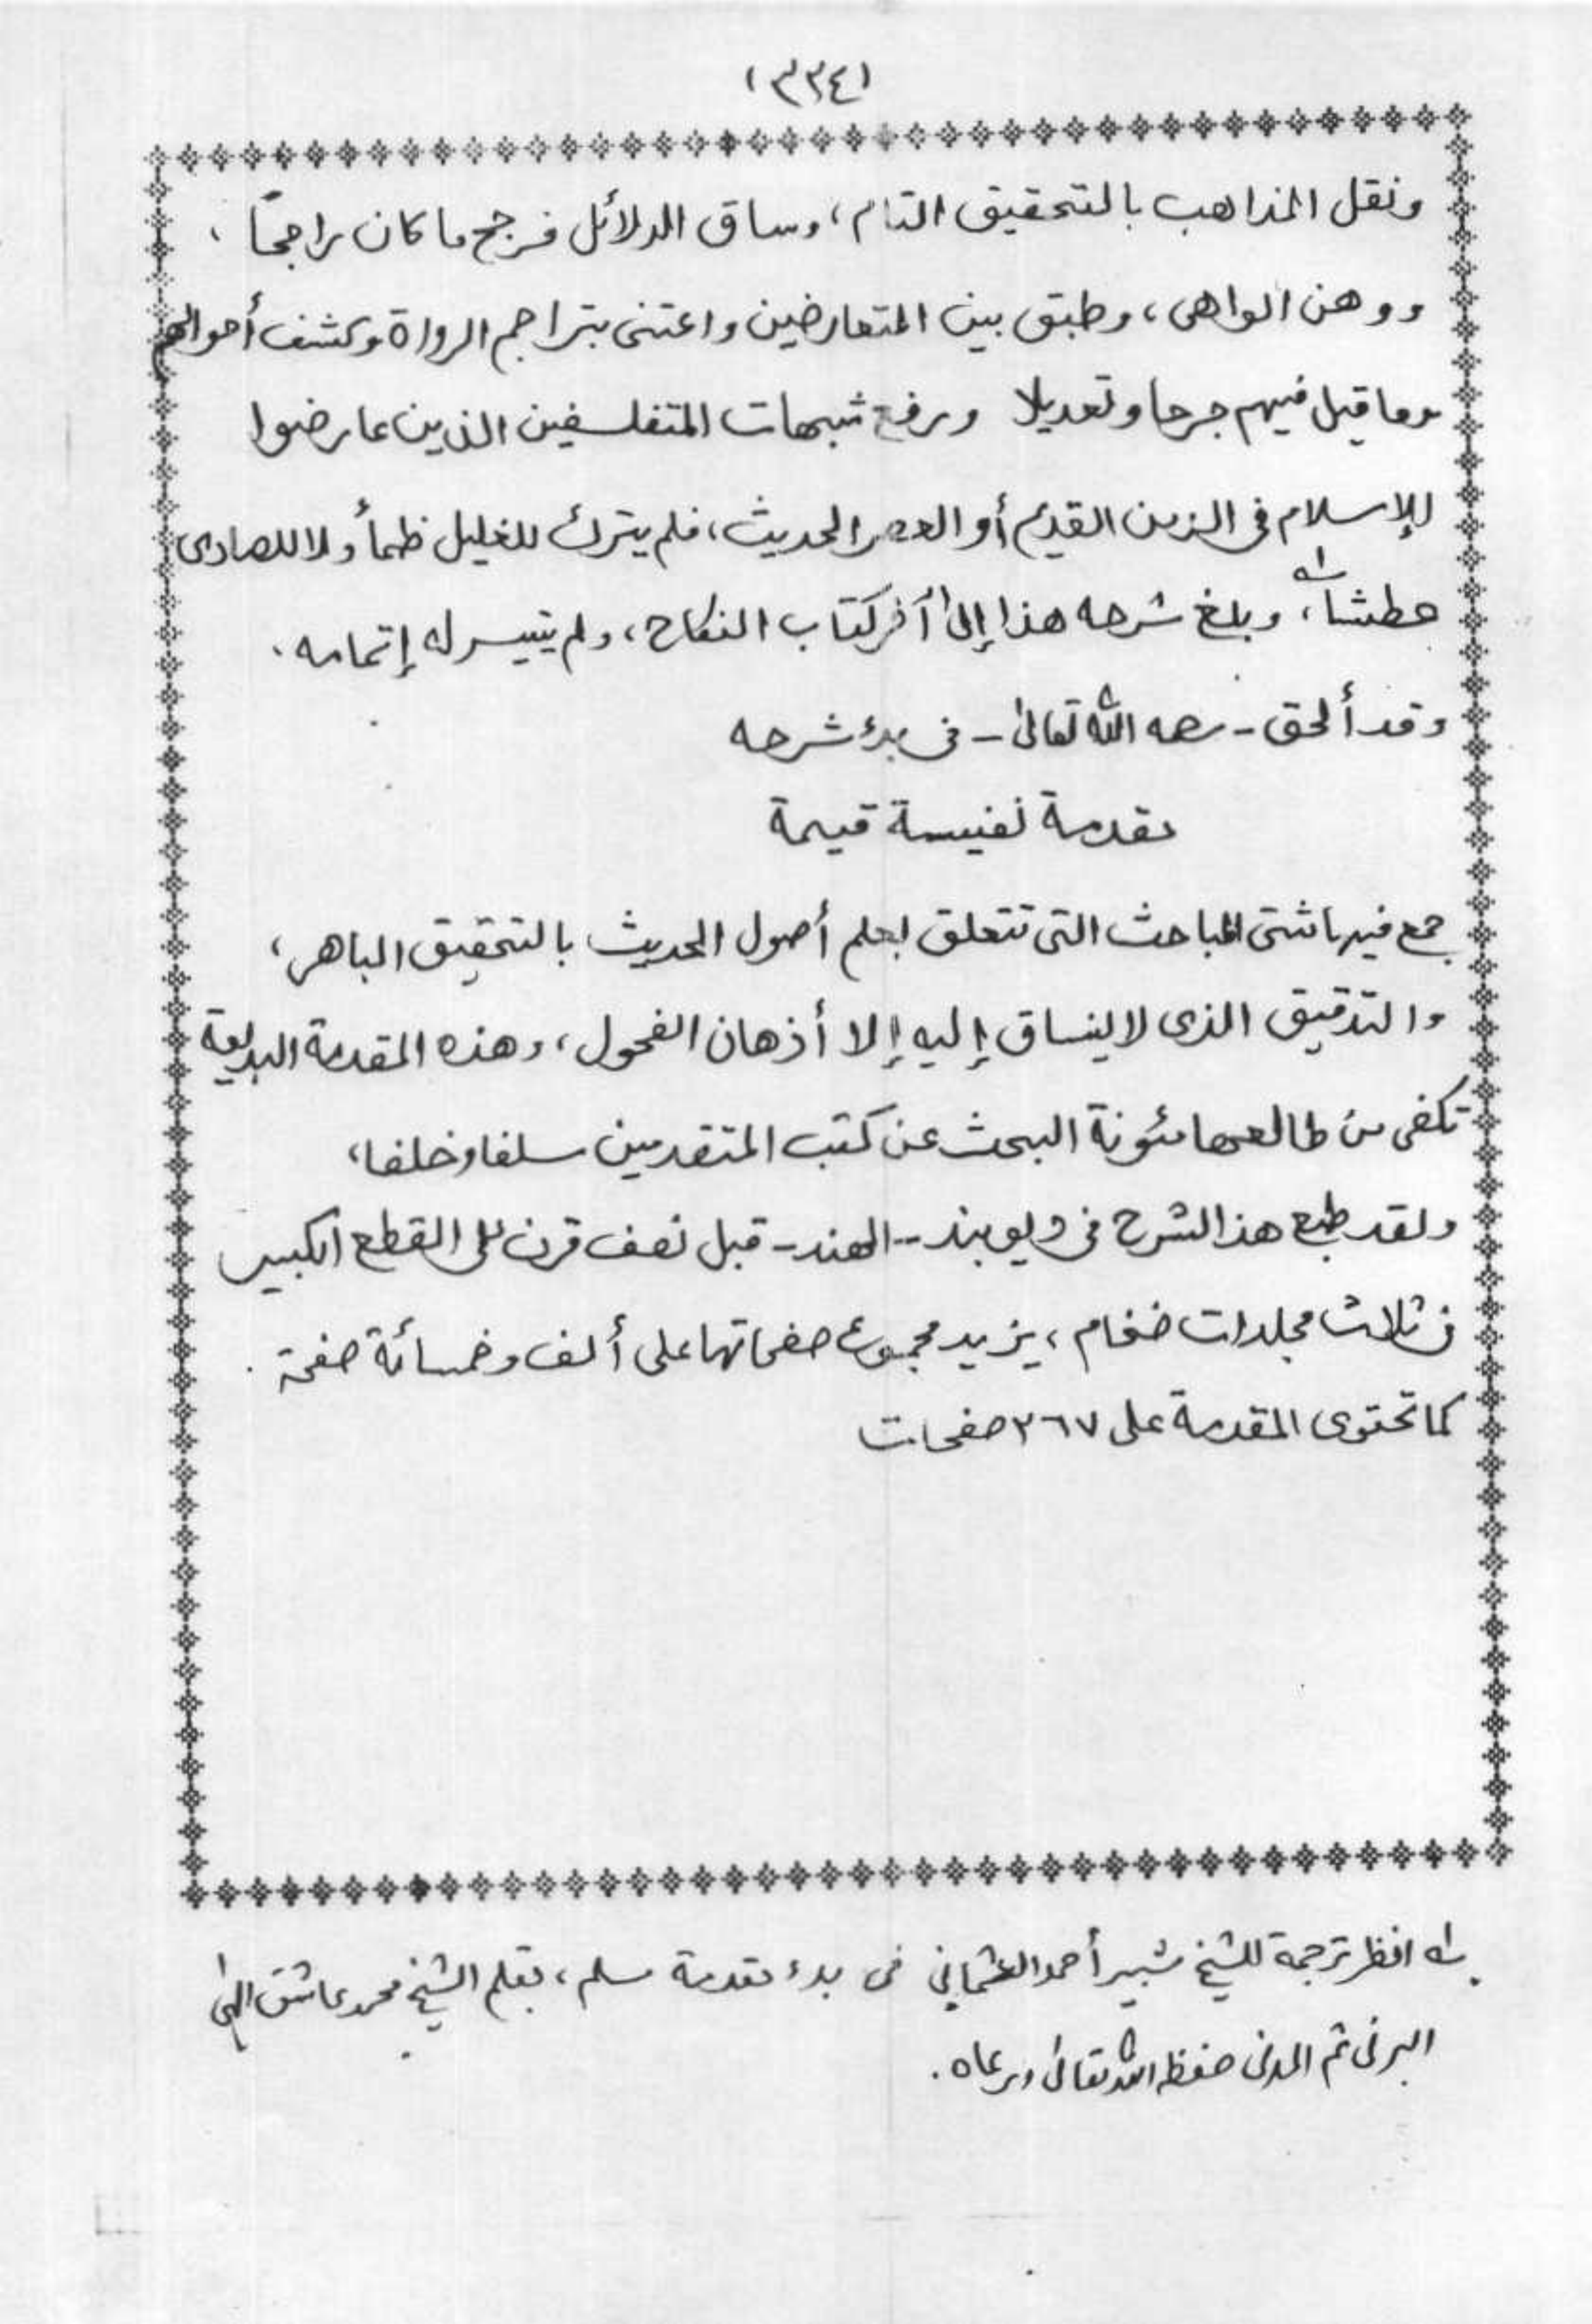 (٣٣٤)
ونقل المذاهب بالتحقيق التام، وساق الدلائل فرجح ما كان راجحًا،
ووهن الواهى، وطبق بين المتعارضين واعتنى بتراجم الرواة وكشف أحوالهم
وما قيل فيهم جرحا وتعديلا ورفع شبهات المتفلسفين الذين عارضوا
للإسلام فى الزمن القديم أو العصر الحديث، فلم يترك للغليل ظمأ ولا للصادى
عطشا، وبلغ شرحه هذا إلى آخر كتاب النكاح، ولم يتيسر له إتمامه.
وقد ألحق - رحمه الله تعالى - فى بدء شرحه
مقدمة نفيسة قيمة
جمع فيها شتى المباحث التى تتعلق بعلم أصول الحديث بالتحقيق الباهر،
والتدقيق الذى لا ينساق إليه إلا أذهان الفحول، وهذه المقدمة البديعة
تكفى من طالعها مئونة البحث عن كتب المتقدمين سلفا وخلفا،
ولقد طبع هذا الشرح فى ديوبند - الهند - قبل نصف قرن على القطع الكبير
فى ثلاث مجلدات ضخام، يزيد مجموع صفحاتها على ألف وخمسائة صفحة.
كما تحتوى المقدمة على ٢٦٧ صفحات
له انظر ترجمة للشيخ شبير أحمد العثماني فى بدء مقدمة مسلم، بقلم الشيخ محمد عاشق الهى
البرنى ثم المدنى حفظه الله تعالى ورعاه.